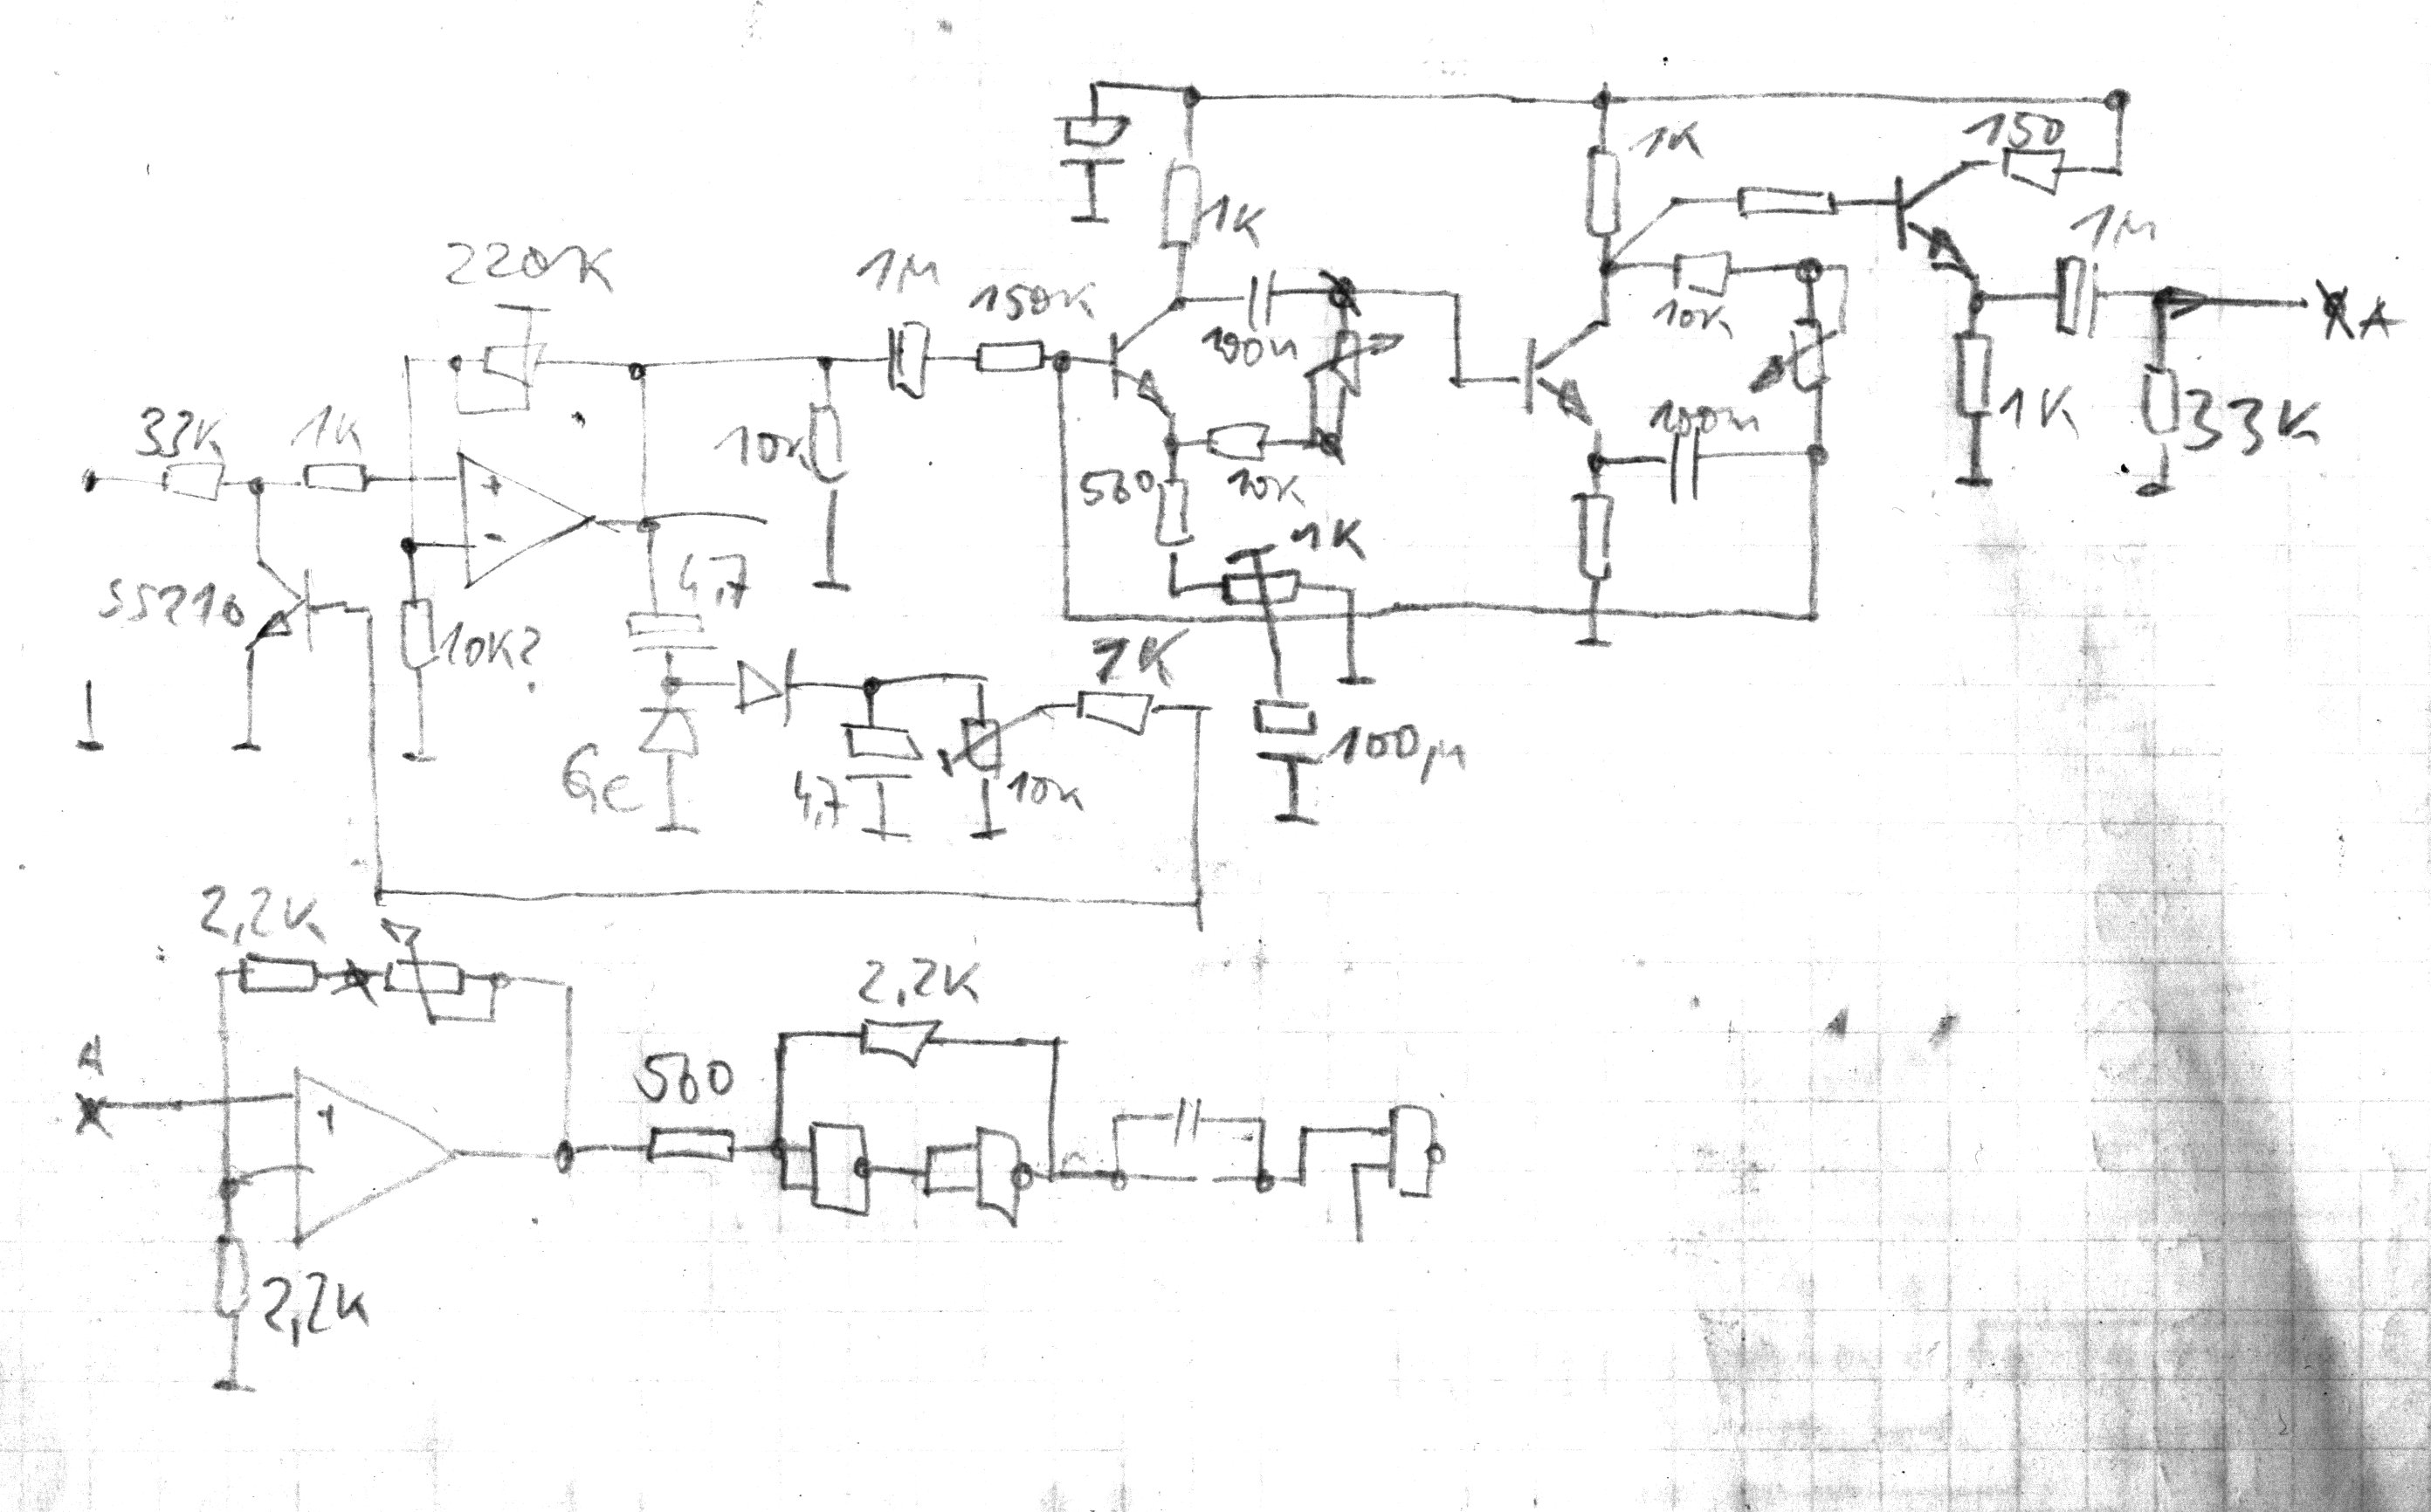 1K
150
1K
1µ
220K
1µ
150K
100n
10K
A
33K
1K
10K
100n
1K
33K
+
560
10K
-
1K
SS216
10K?
4,7
1K
Ge
4,7
10K
100µ
2,2K
2,2K
A
560
+
2,2K